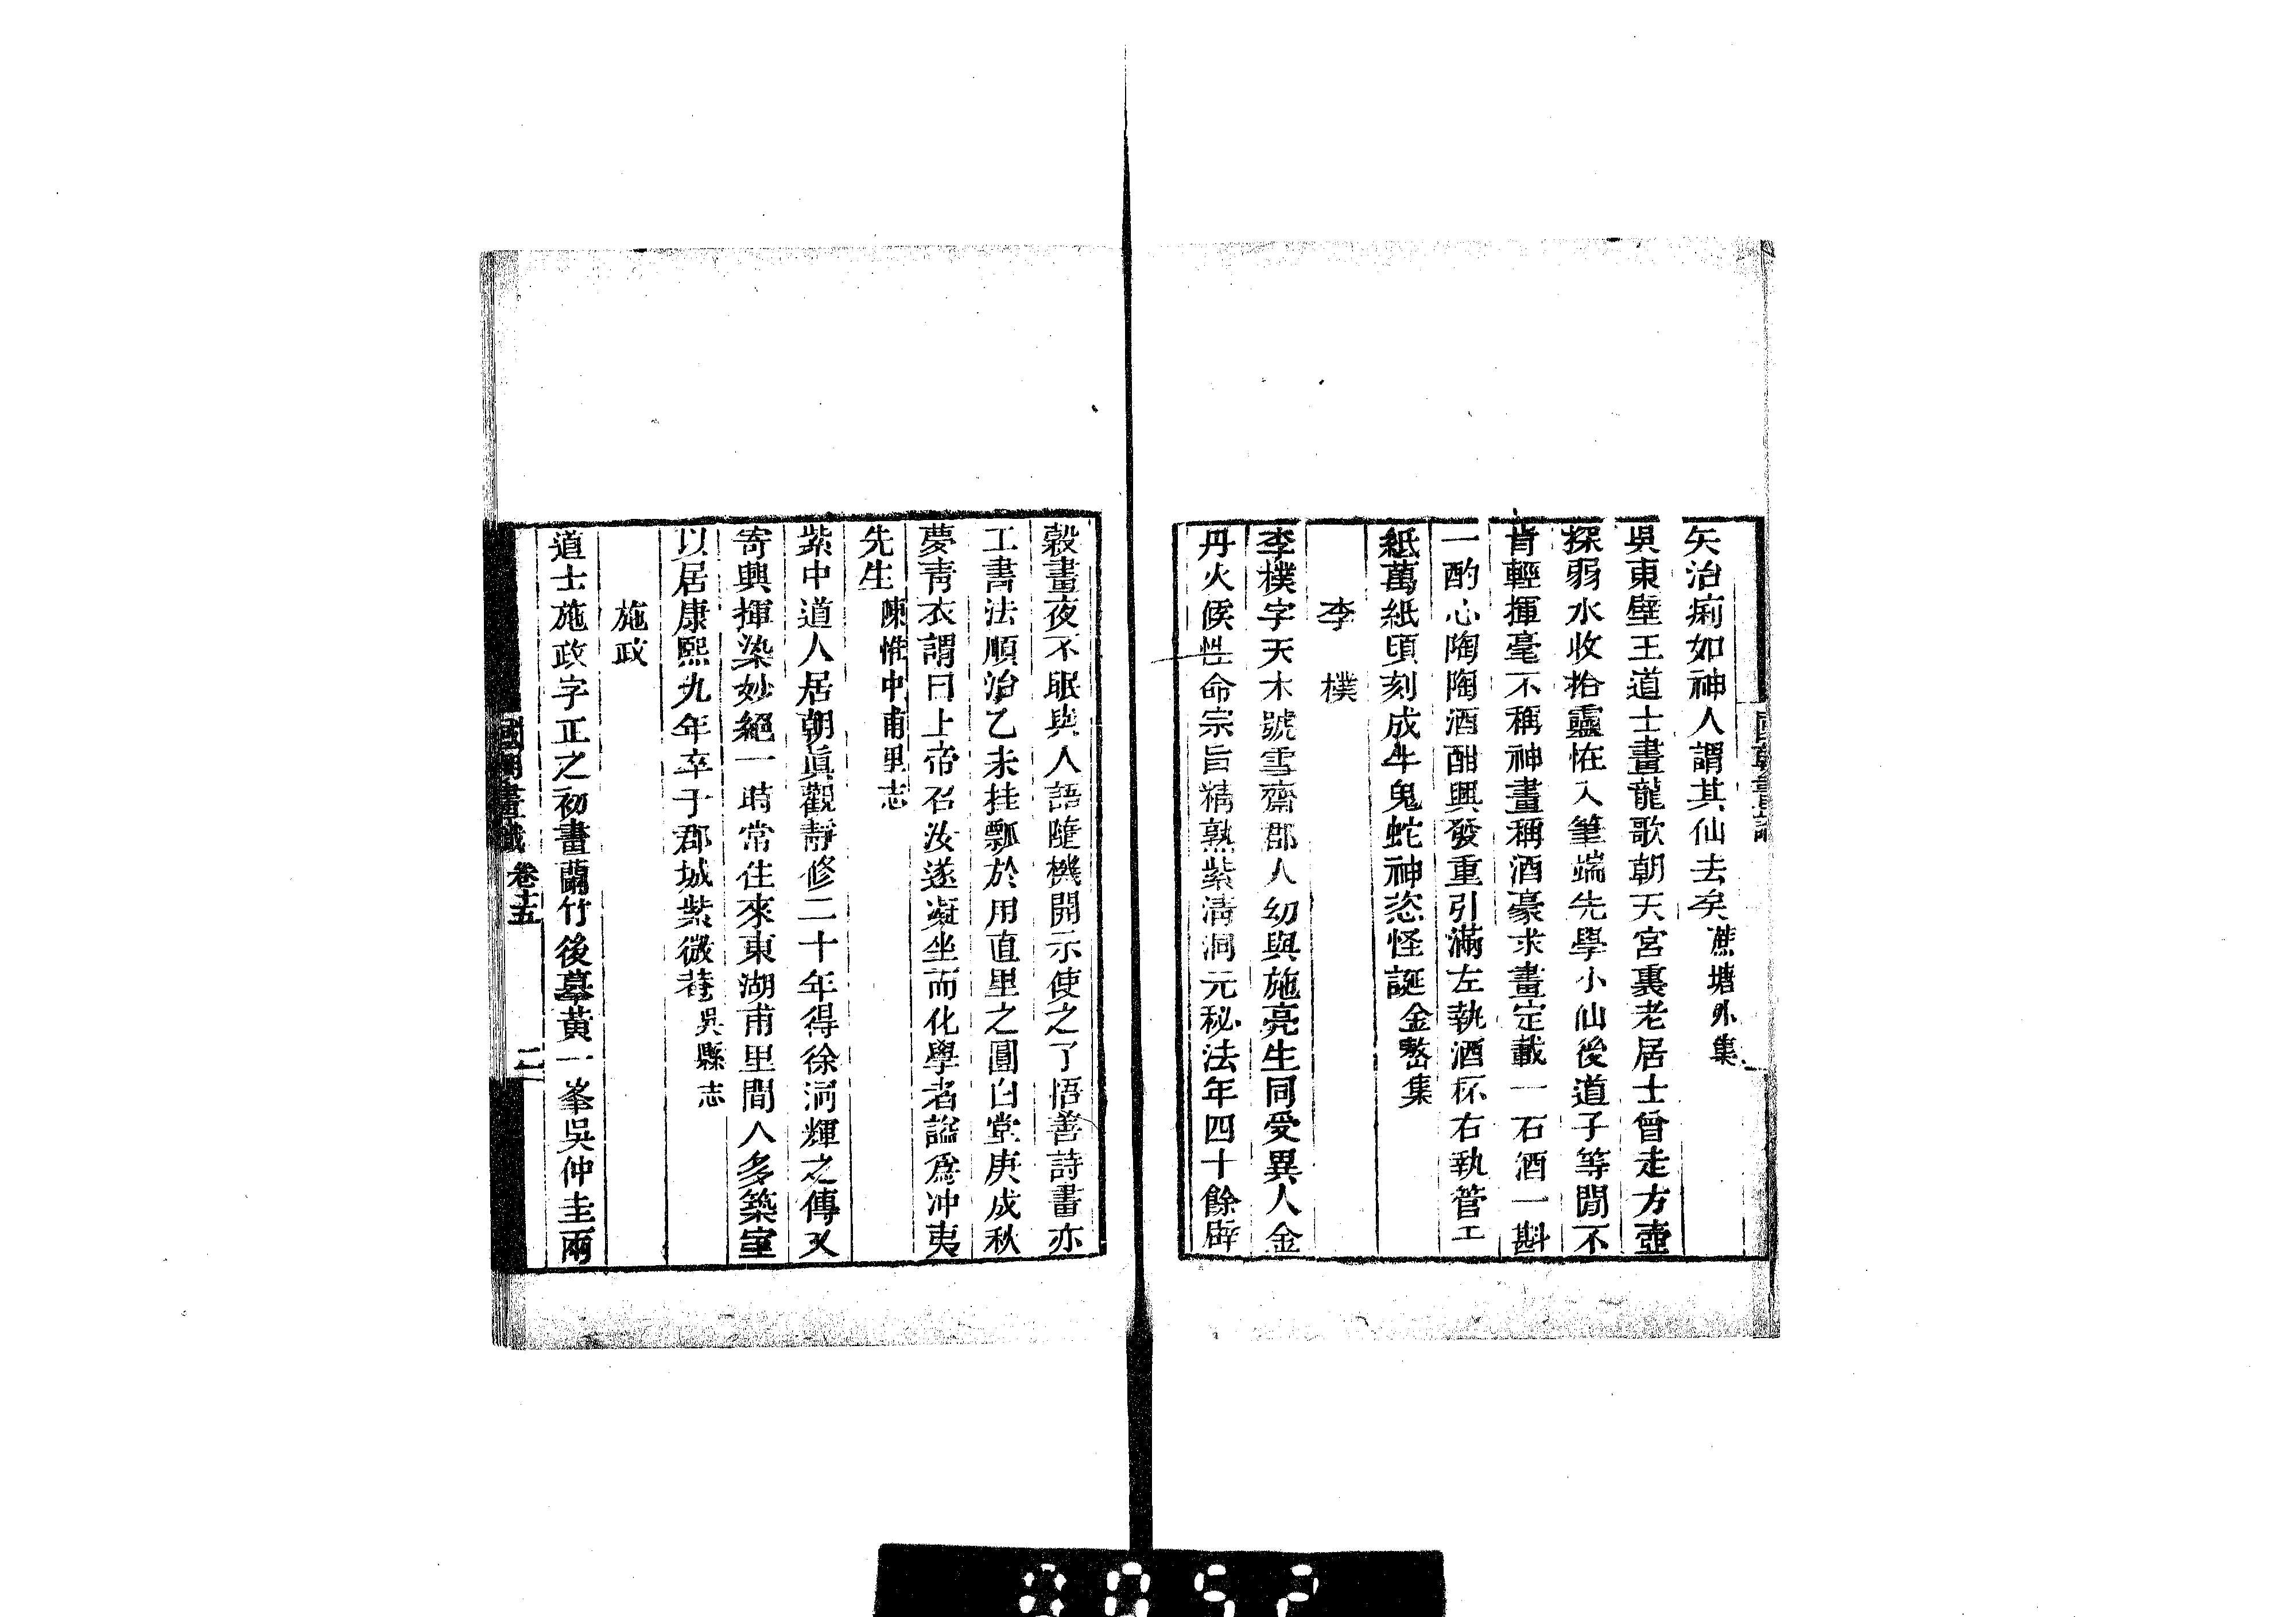 矢治痢如神人謂其仙去矣蕉塘外集
吳東壁王道士畫龍歌朝天宮裏老居士曾走方壺
探弱水收拾靈怪入筆端先學小仙後道子等閒不
肯輕揮毫不稱神畫稱酒豪求畫定載一石酒一斟
一酌心陶陶酒酣興發重引滿左執酒杯右執管工
紙萬紙頃刻成牛鬼蛇神恣怪誕金嶅集
李樸
李樸字天木號雪齋郡人幼與施亮生同受異人金
丹火候性命宗旨精熟紫清洞元秘法年四十餘辟
穀晝夜不眠與人語隨機開示使之了悟善詩畫亦
工書法順治乙未挂瓢於甪直里之圓白堂庚戌秋
夢青衣謂曰上帝召汝遂凝坐而化學者諡爲冲夷
先生陳惟中甫里志
紫中道人居朝眞觀靜修二十年得徐洞輝之傳又
寄興揮染妙絕一時常往來東湖甫里間人多築室
以居康熙九年卒于郡城紫微菴吳縣志
施政
道士施政字正之初畫蘭竹後摹黃一峯吳仲圭兩
國朝畫識 卷十五 二